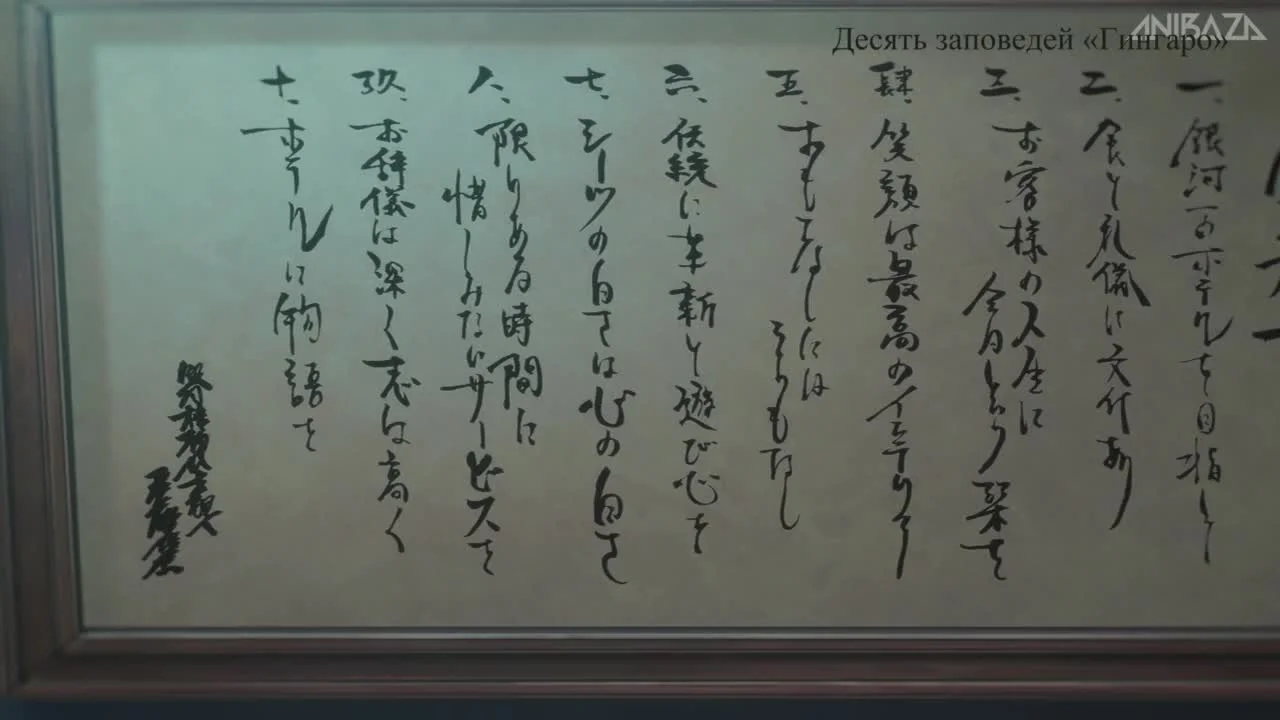 Десять заповедей «Гингаро»
ANIBAZA
一、銀河一のホテルを目指して
二、食と礼儀に文化あり
三、お客様の人生に
今日という栞を
肆、笑顔は最高のインテリア
五、おもてなしには
うらもなし
六、伝統に革新と遊び心を
七、シーツの白さは心の白さ
八、限りある時間に
惜しみないサービスを
玖、お辞儀は深く志は高く
十、ホテルに物語を